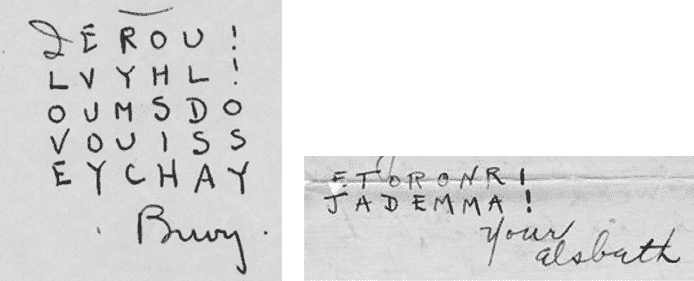 JEROU!
LVYHL!
OUMSDO
VOUISS
EYCHAY
ETORONR!
JADEMMA!
your
alsbath